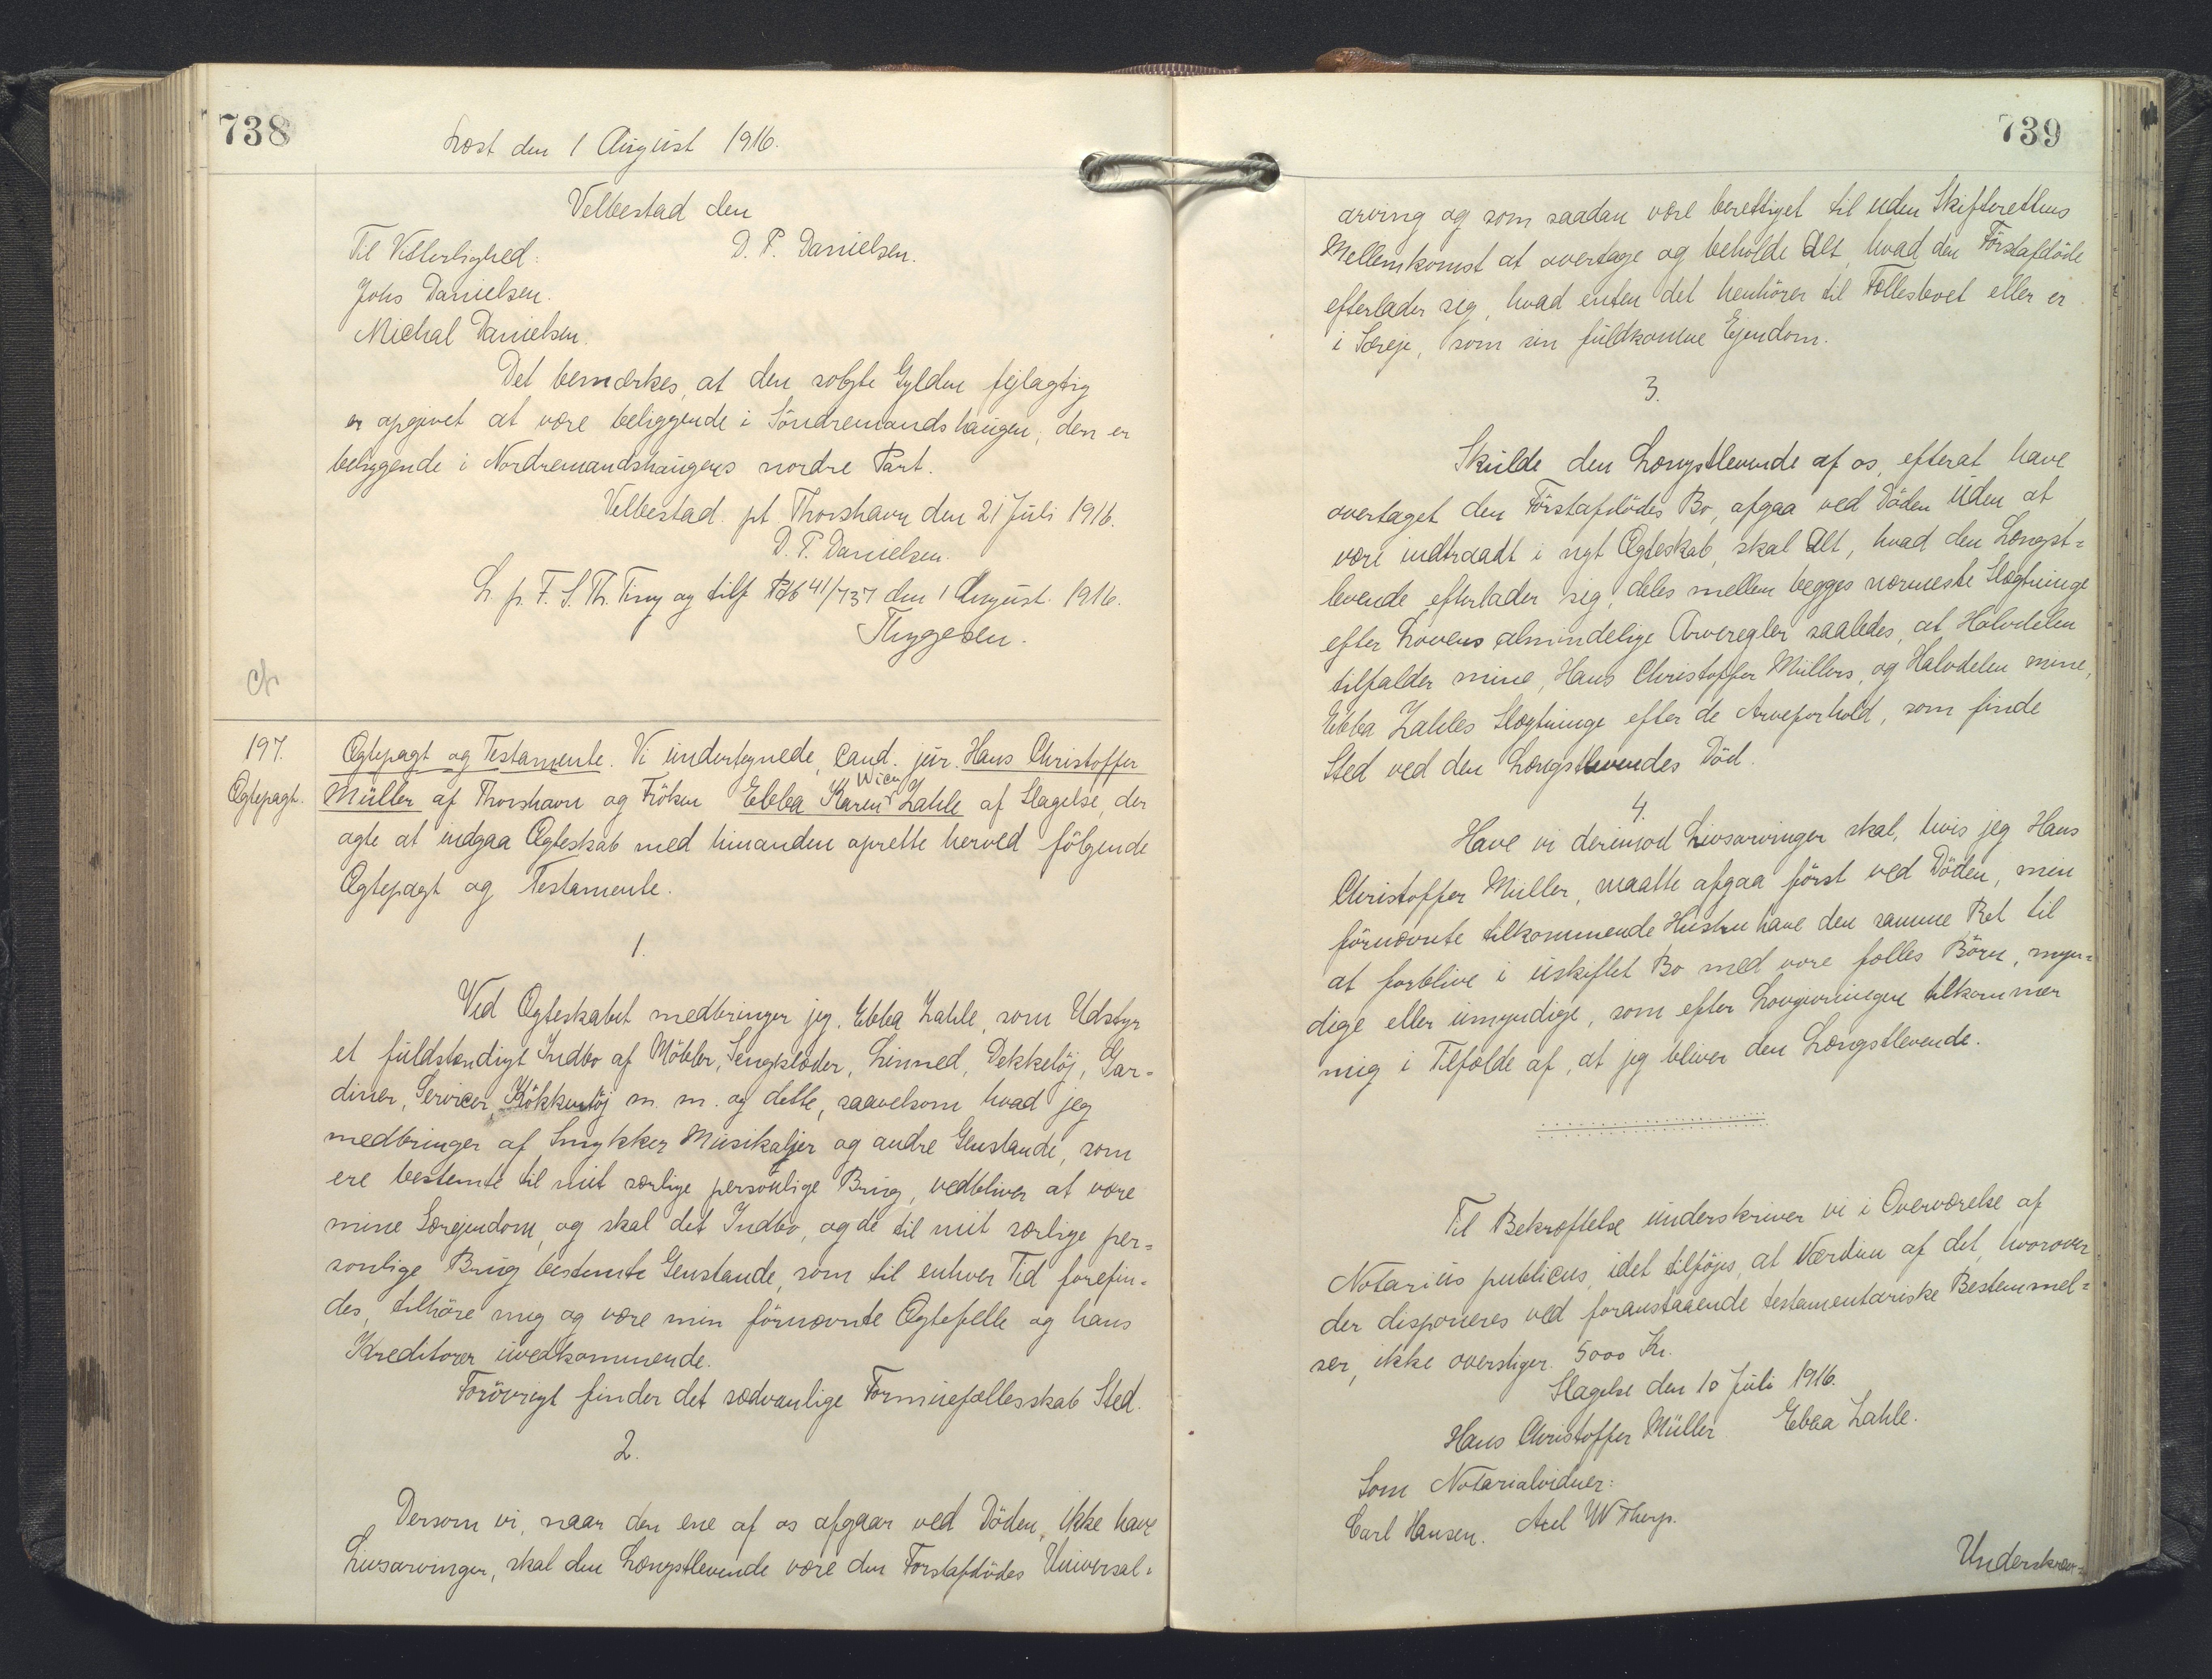 738
Læst den 1 August 1916.
Velbestad den
Til Vitterlighed:
D. P. Danielsen.
Johs Danielsen.
Michal Danielsen.
Det bemærkes, at den solgte Gylden fejlagtig
er opgivet at være beliggende i Söndremandshaugen, den er
beliggende i Nordremandshaugens nordre Part.
Velbestad pt Thorshavn den 21 Juli 1916.
D. P. Danielsen.
L. p. F. S. Th. Ting og tilf Pdb 41/737 den 1 August 1916.
Thygesen.
cfr
197.
Ægtepagt.
Ægtepagt og Testamente. Vi undertegnede, cand. jur. Hans Christoffer
Müller af Thorshavn og Fröken Ebba Karen Wieng Zahle af Slagelse, der
agte at indgaa Ægteskab med hinanden oprette herved fölgende
Ægtepagt og Testamente.
1.
Ved Ægteskabet medbringer jeg, Ebba Zahle, som Udstyr
et fuldstændigt Indbo af Möbler, Sengklæder, Linned, Dekketöj, Gar=
diner, Servicer, Kökkentöj m. m. og dette, saavelsom hvad jeg
medbringer af Smykker Musikaljer og andre Genstande, som
ere bestemte til mit særlige personlige Brug, vedbliver at være
mine Særejendom, og skal det Indbo, og de til mit særlige per=
sonlige Brug bestemte Genstande, som til enhver Tid forefin=
des, tilhöre mig og være min förnævnte Ægtefælle og hans
Kreditorer uvedkommende.
Forövrigt finder det sædvanlige Formuefællesskab Sted.
2.
Dersom vi, naar den ene af os afgaar ved Döden, ikke have
Livsarvinger, skal den Længstlevende være den Förstafdödes Universal=
739
arving og som saadan være berettiget til uden Skifterettens
Mellemkomst at overtage og beholde Alt, hvad den Förstafdöde
efterlader sig, hvad enten det henhörer til Fællesboet eller er
i Særeje, som sin fuldkomne Ejendom.
3.
Skulde den Længstlevende af os, efterat have
overtaget den Förstafdödes Bo, afgaa ved Döden uden at
være indtraadt i nyt Ægteskab, skal Alt, hvad den Længst=
levende efterlader sig, deles mellem begges nærmeste Slægtninge
efter Lovens almindelige Arveregler saaledes, at Halvdelen
tilfalder mine, Hans Christoffer Müllers, og Halvdelen mine,
Ebba Zahles Slægtninge efter de Arveforhold, som finde
Sted ved den Længstlevendes Död.
4.
Have vi derimod Livsarvinger skal, hvis jeg Hans
Christoffer Müller, maatte afgaa först ved Döden, min
förnævnte tilkommende Hustru have den samme Ret til
at forblive i uskiftet Bo med vore fælles Börn, myn=
dige eller umyndige, som efter Lovgivningen tilkommer
mig i Tilfælde af, at jeg bliver den Længstlevende.
Til Bekræftelse underskriver vi i Overværelse af
Notarius publicus, idet tilföjes, at Værdien af det, hvorover
der disponeres ved foranstaaende testamentariske Bestemmel=
ser, ikke overstiger 5000 Kr.
Slagelse den 10 Juli 1916.
Hans Christoffer Müller Ebba Zahle.
Som Notarialvidner:
Carl Hansen. Axel W Therp.
Underskrev=